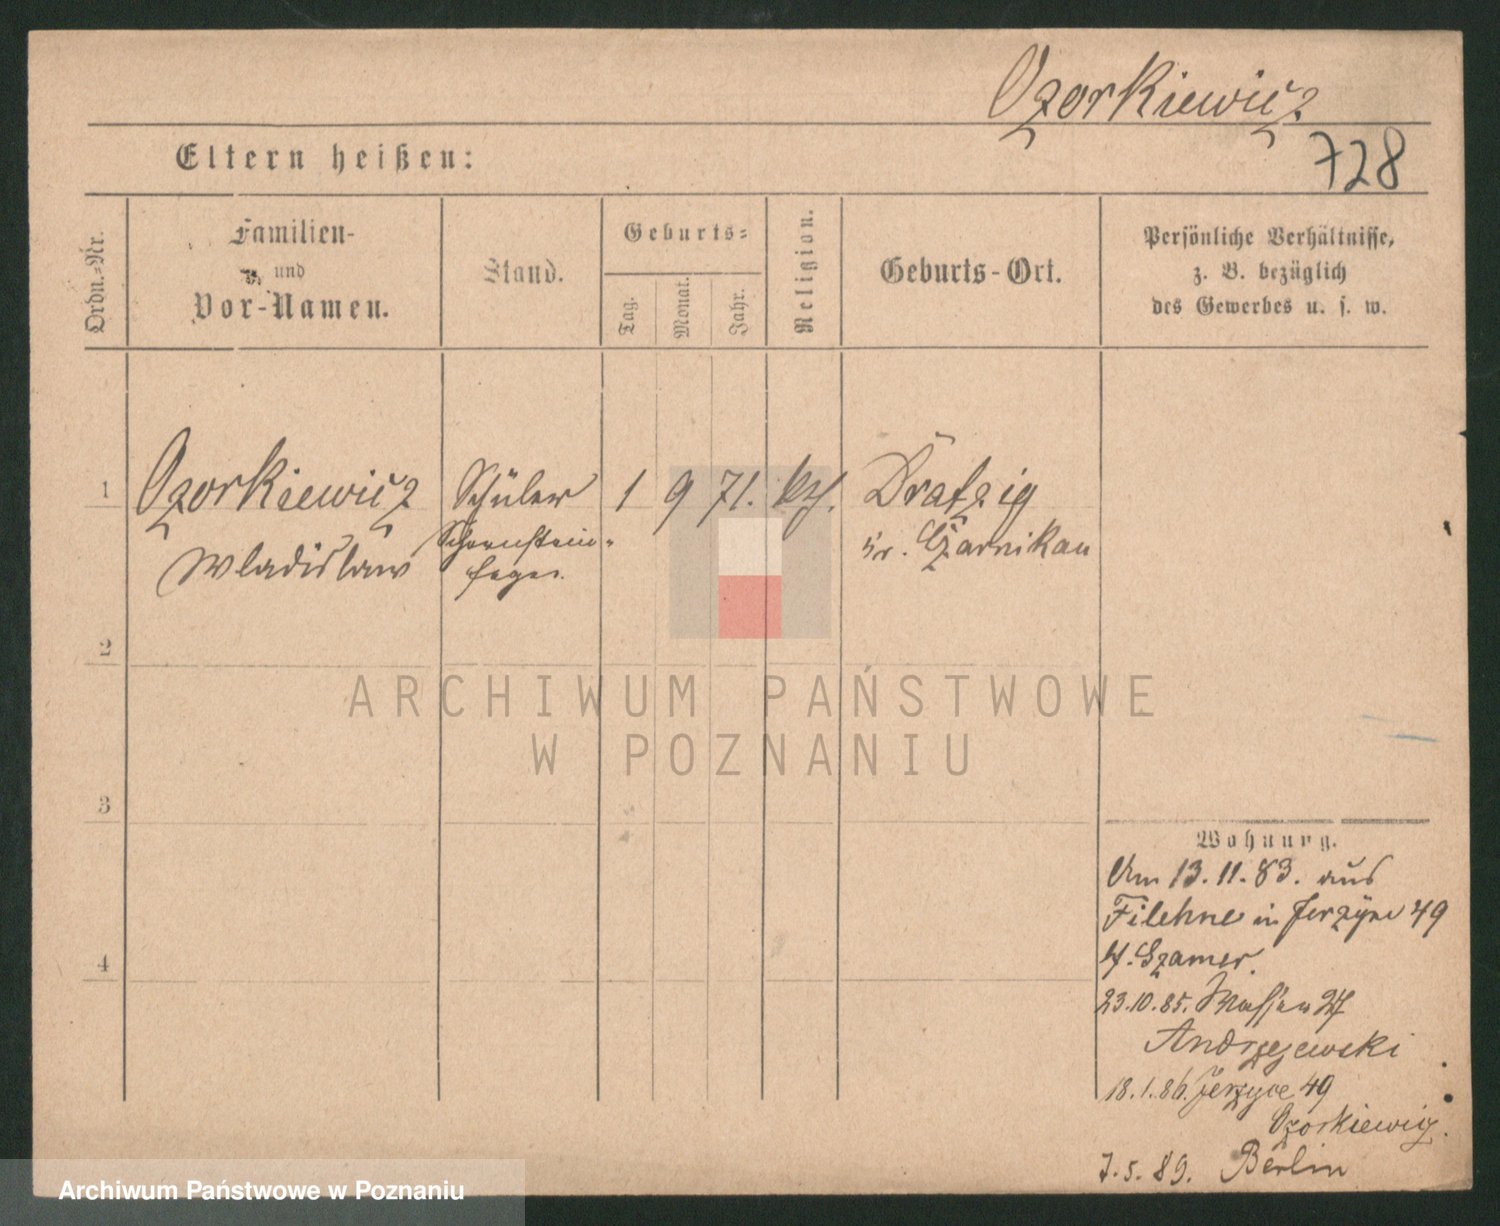 Ozorkiewicz
728
Eltern heißen:
Ordn.=Nr.
Familien-
und
Vor-Namen.
Stand.
Geburts=
Tag.
Monat.
Jahr.
Religion.
Geburts-Ort.
Persönliche Verhältnisse,
z. B. bezüglich
des Gewerbes u. s. w.
1 Ozorkiewicz Schüler 1 9 71. kth. Dratzig
Wladislaw Schornstein- Kr. Czarnikau
feger.
2
3
4
ARCHIWUM PAŃSTWOWE
W POZNANIU
Wohnung.
Um 13.11.83. aus
Filehne in Jerzyce 49
b/. Szamer.
23.10.85. 27
Andrzejewski
18.1.86. Jerzyce 49
Ozorkiewicz.
7.5.89. Berlin
Archiwum Państwowe w Poznaniu